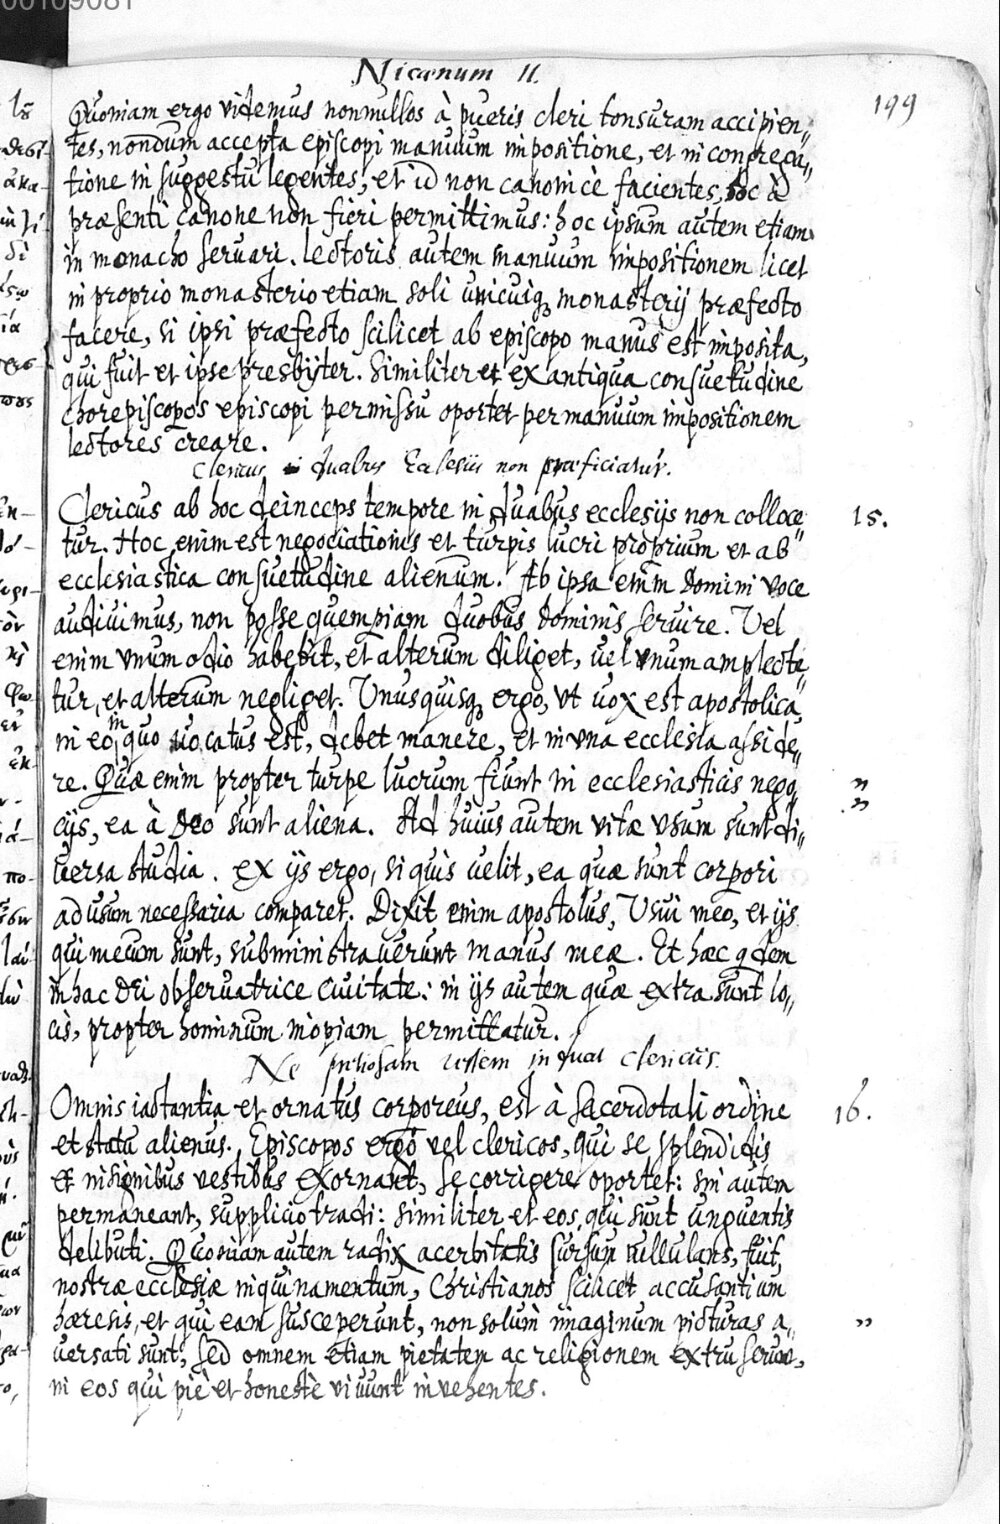 00109081
Nicænum II.
199
Quoniam ergo videmus nonnullos à pueris cleri tonsuram accipien„
tes, nondum accepta episcopi manuum impositione, et in congrega„
tione in suggestu legentes, et id non canonicè facientes, hoc à
præsenti canone non fieri permittimus: hoc ipsum autem etiam
in monacho seruari. lectoris autem manuum impositionem licet
in proprio monasterio etiam soli unicuiq; monasterij præfecto
facere, si ipsi præfecto scilicet ab episcopo manus est imposita,
qui fuit et ipse presbyter. Similiter et ex antiqua consuetudine
chorepiscopos episcopi permissu oportet per manuum impositionem
lectores creare.
Clericus duabus Ecclesiis non præficiatur.
Clericus ab hoc deinceps tempore in duabus ecclesijs non colloce„
15.
tur. Hoc enim est negociationis et turpis lucri proprium et ab
ecclesiastica consuetudine alienum. Ab ipsa enim Domini voce
audiuimus, non posse quempiam duobus dominis seruire. Vel
enim vnum odio habebit, et alterum diliget, uel vnum amplecte„
tur, et alterum negliget. Vnusquisq; ergo, vt uox est apostolica
in eo, in quo uocatus est, debet manere, et in vna ecclesia asside„
re. Quæ enim propter turpe lucrum fiunt in ecclesiasticis nego„
„
cijs, ea à Deo sunt aliena. Ad huius autem vitæ vsum sunt di„
„
uersa studia. ex ijs ergo, si quis uelit, ea quæ sunt corpori
ad usum necessaria comparet. Dixit enim apostolus, Vsui meo, et ijs
qui mecum sunt, subministrauerunt manus meæ. Et hæc qdem
in hac Dei obseruatrice ciuitate: in ijs autem quæ extra sunt lo„
cis, propter hominum inopiam permittatur.
Ne pretiosam vestem induat clericus.
Omnis iactantia et ornatus corporeus, est à sacerdotali ordine
16.
et statu alienus. Episcopos ergo vel clericos, qui se splendidis
et insignibus vestibus exornant, se corrigere oportet: sin autem
permaneant, supplicio tradi: similiter et eos, qui sunt unguentis
delibuti. Quoniam autem radix acerbitatis sursum pullulans, fuit
nostræ ecclesiæ inquinamentum, Christianos scilicet accusantium
hæresis, et qui eam susceperunt, non solùm imaginum picturas a„
„
uersati sunt, sed omnem etiam pietatem ac religionem extruserunt,
in eos qui piè et honestè viuunt inuehentes.